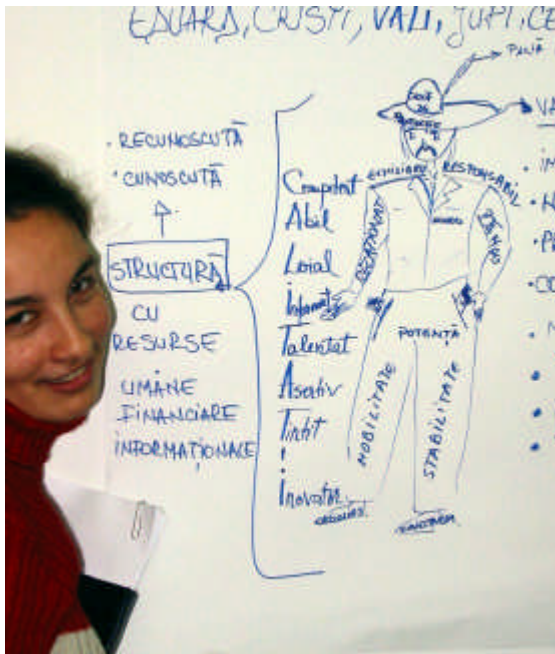 EDUARD, CRISTI, VALI, JUPI, CE
PALĂ
VA
• RECUNOSCUTĂ
• CUNOSCUTĂ
STRUCTURĂ
CU
RESURSE
UMANE
FINANCIARE
INFORMAȚIONALE
Competent
Abil
Loial
Informat
Talentat
Asertiv
Tintit
!
Inovator
ECHILIBRU
RESPONSABIL
POTENȚĂ
MOBILITATE
STABILITATE